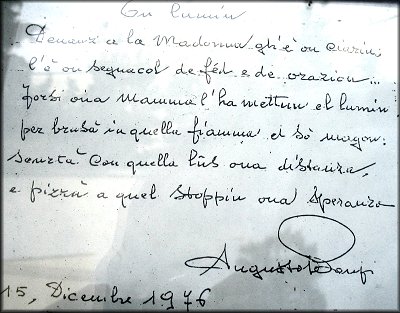 On lumin
Denanz a la Madonna gh'è on ciarin:
l'è on segnacol de féd e de orazion...
Forsi ona Mamma l'ha mettuu el lumin
per brusà in quella fiamma el sò magon:
scurtà con quella lûs ona distanza,
e pizzà a quel stoppin ona speranza
15, Dicembre 1976